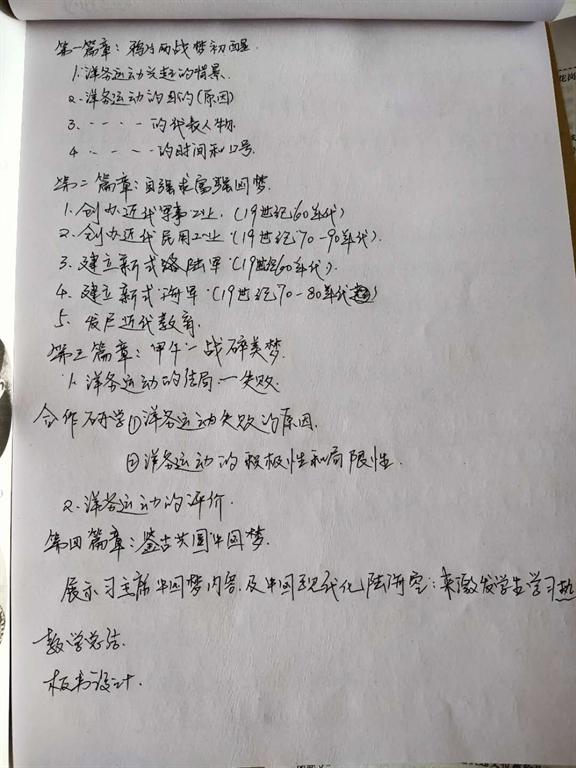 第一篇章：鸦片两战梦初醒
1.洋务运动兴起的背景
2.洋务运动的目的(原因)
3.－－－－的代表人物.
4.－－－－的时间和口号.
第二篇章：自强求富强国梦.
1.创办近代军事工业.(19世纪60年代)
2.创办近代民用工业(19世纪70-90年代).
3.建立新式陆军(19世纪60年代).
4.建立新式海军.(19世纪70-80年代)
5.发展近代教育.
第三篇章：甲午一战碎美梦.
1.洋务运动的结局—失败.
合作研学①洋务运动失败的原因.
②洋务运动的积极性和局限性.
2.洋务运动的评价.
第四篇章：鉴古共圆中国梦.
展示习主席中国梦内容及中国现代化陆海空：来激发学生学习热
教学总结.
板书设计.